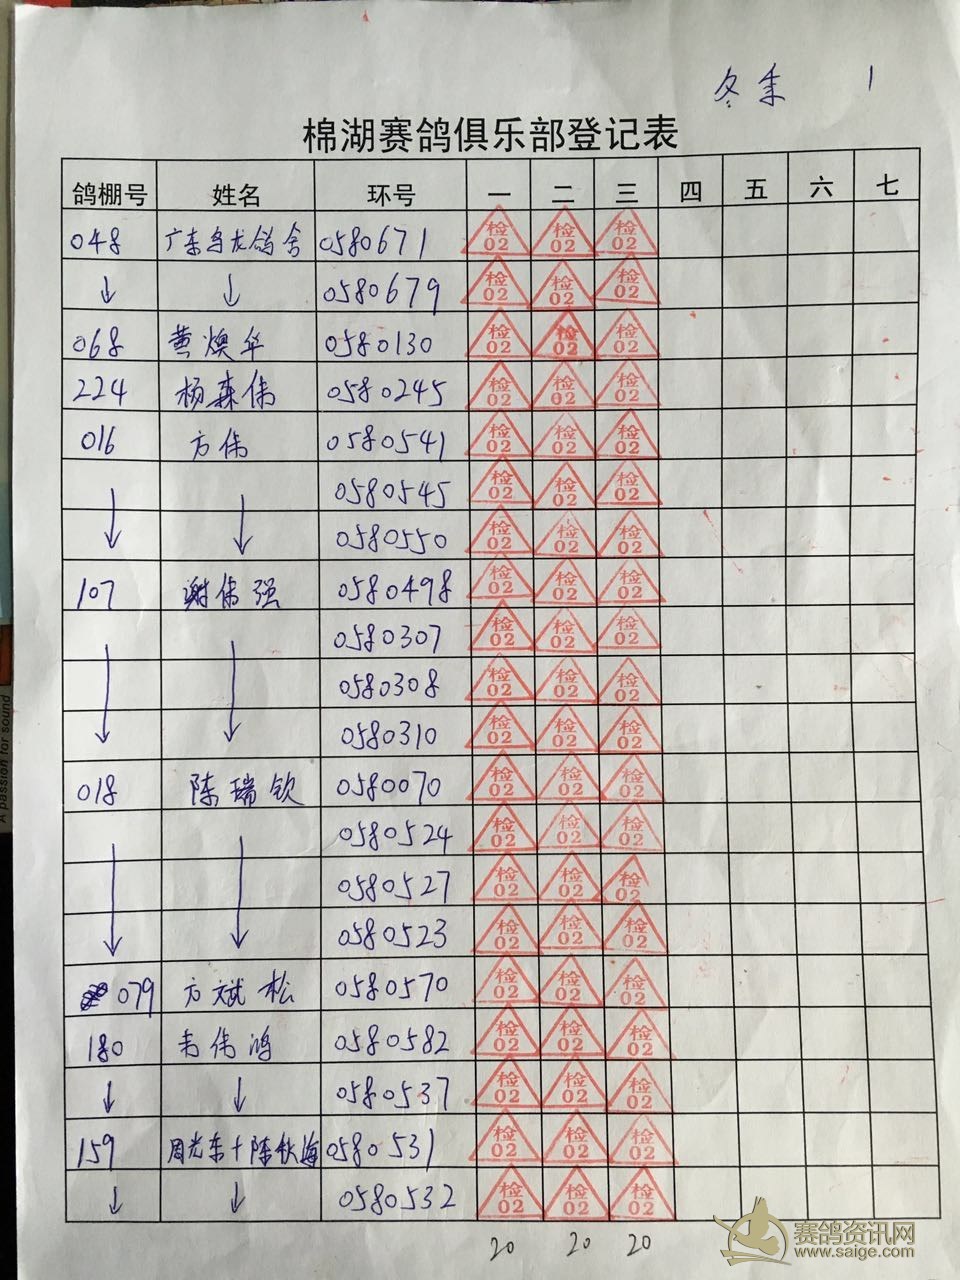 冬季 1
棉湖赛鸽俱乐部登记表
鸽棚号 姓名 环号 一 二 三 四 五 六 七
048 广东乌龙鸽舍 0580671 检02 检02 检02
↓ ↓ 0580679 检02 检02 检02
068 黄焕华 0580130 检02 检02 检02
224 杨森伟 0580245 检02 检02 检02
016 方伟 0580541 检02 检02 检02
0580545 检02 检02 检02
↓ ↓ 0580550 检02 检02 检02
107 谢伟强 0580498 检02 检02 检02
0580307 检02 检02 检02
0580308 检02 检02 检02
↓ ↓ 0580310 检02 检02 检02
018 陈瑞钦 0580070 检02 检02 检02
0580524 检02 检02 检02
0580527 检02 检02 检02
↓ ↓ 0580523 检02 检02 检02
079 方斌松 0580570 检02 检02 检02
180 韦伟鸿 0580582 检02 检02 检02
↓ ↓ 0580537 检02 检02 检02
159 周光东+陈钦海 0580531 检02 检02 检02
↓ ↓ 0580532 检02 检02 检02
20 20 20
赛鸽资讯网
www.saige.com
A passion for sound